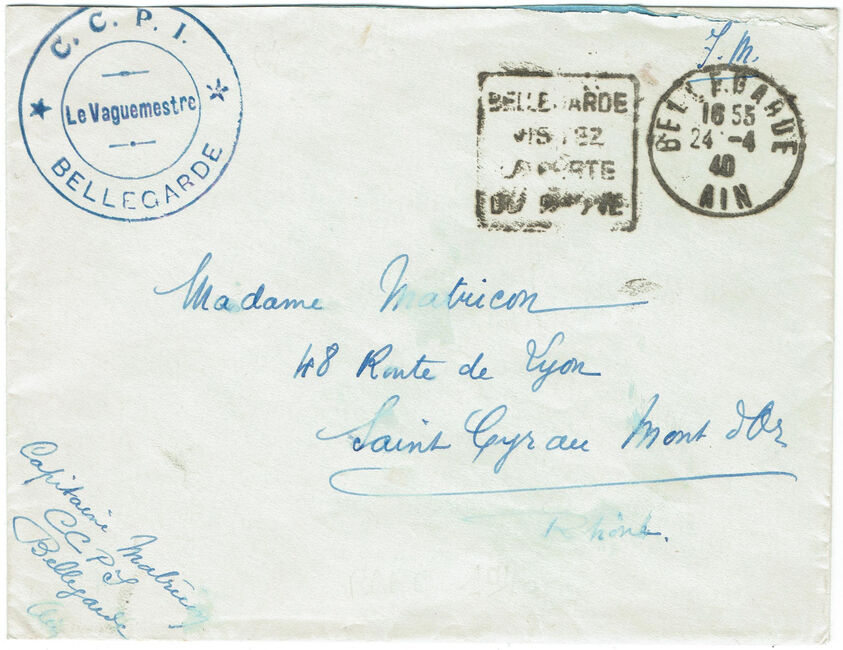 C. C. P. I.
Le Vaguemestre
BELLEGARDE
F. M.
BELLEGARDE
VISITEZ
LA PERTE
DU RHÔNE
BELLEGARDE
16 55
24 -4
40
AIN
Madame Matricon
48 Route de Lyon
Saint Cyr au Mont d'Or
Rhône.
Capitaine Matricon
CCPI
Bellegarde
Ain